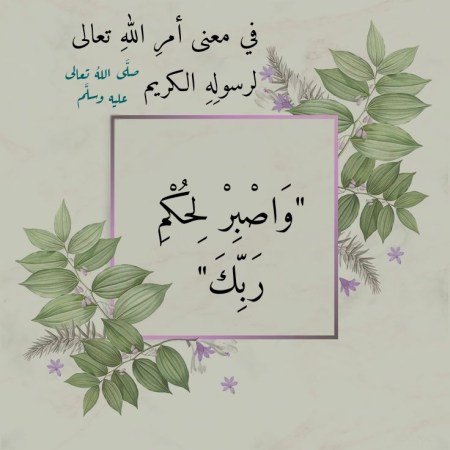 في معنى أمرِ اللهِ تعالى
لرسولِهِ الكريم صلَّى اللهُ تعالى عليه وسلَّم
"وَاصْبِرْ لِحُكْمِ
رَبِّكَ"